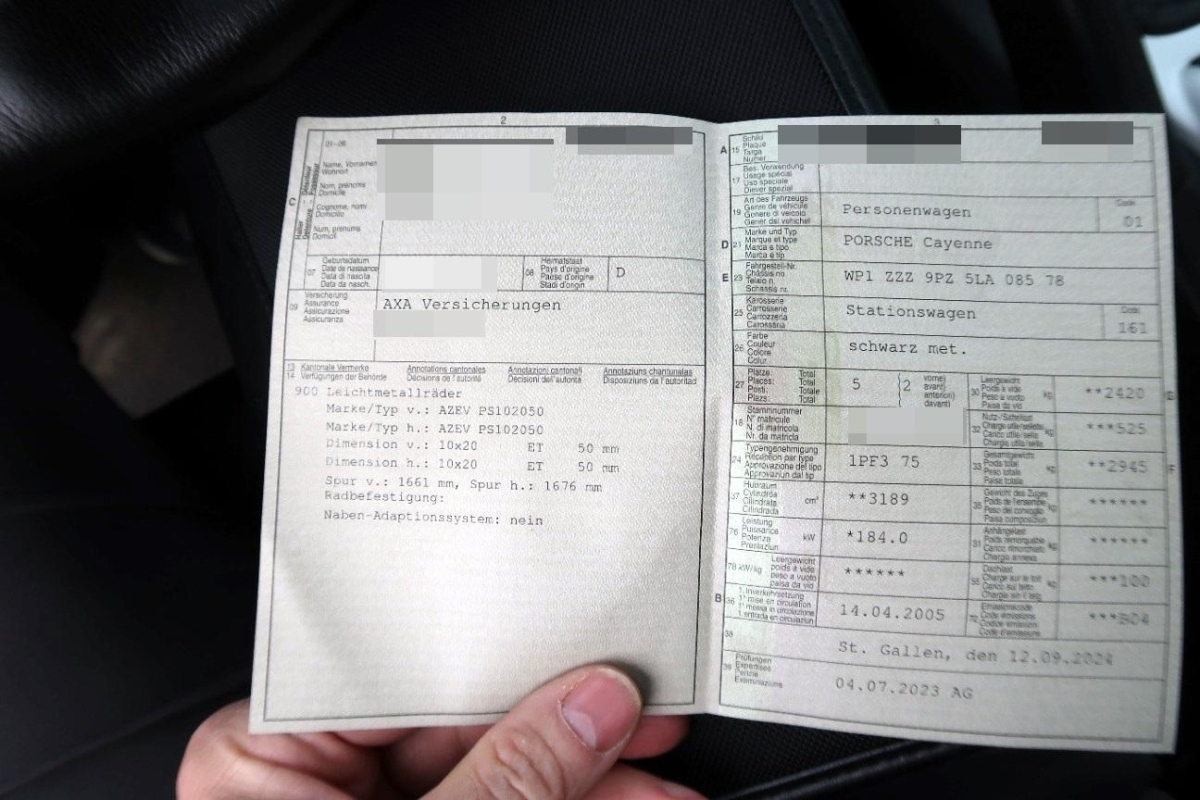 2
01-06
C
Name, Vornamen
Wohnort
Nom, prénoms
Domicile
Cognome, nomi
Domicilio
Num, prenums
Domicil
07
Geburtsdatum
Date de naissance
Data di nascita
Data da nasch.
08
Heimatstaat
Pays d'origine
Paese d'origine
Stadi d'origin
D
09
Versicherung
Assurance
Assicurazione
Assicuranza
AXA Versicherungen
13
14
Kantonale Vermerke
Verfügungen der Behörde
Annotations cantonales
Décisions de l'autorité
Annotazioni cantonali
Decisioni dell'autorità
Annotaziuns chantunalas
Disposiziuns da l'autoritad
900 Leichtmetallräder
Marke/Typ v.: AZEV PS102050
Marke/Typ h.: AZEV PS102050
Dimension v.: 10x20 ET 50 mm
Dimension h.: 10x20 ET 50 mm
Spur v.: 1661 mm, Spur h.: 1676 mm
Radbefestigung:
Naben-Adaptionssystem: nein
3
A
15
Schild
Plaque
Targa
Numer
17
Bes. Verwendung
Usage spécial
Uso speciale
Diever spezial
19
Art des Fahrzeugs
Genre de véhicule
Genere di veicolo
Gener dal vehichel
Personenwagen
Code
01
D
21
Marke und Typ
Marque et type
Marca e tipo
Marca e tip
PORSCHE Cayenne
E
23
Fahrgestell-Nr.
Châssis no.
Telaio n.
Schassis nr.
WP1 ZZZ 9PZ 5LA 085 78
25
Karosserie
Carrosserie
Carrozzeria
Carossaria
Stationswagen
Code
161
26
Farbe
Couleur
Colore
Colur
schwarz met.
27
Plätze: Total
Places: Total
Posti: Totale
Plazs: Total
5
{2
vorne)
avant)
anteriori)
davant)
30
Leergewicht
Poids à vide
Peso a vuoto
Paisa da vid
kg
**2420
18
Stammnummer
N° matricule
N. di matricola
Nr. da matricla
32
kg
***525
24
Typengenehmigung
Réception par type
Approvazione del tipo
Approvaziun dal tip
1PF3 75
33
Gesamtgewicht
Poids total
Peso totale
Paisa totala
kg
**2945
37
Hubraum
Cylindrée
Cilindrata
Cilindrada
cm³
**3189
35
Gewicht des Zuges
kg
******
76
Leistung
Puissance
Potenza
Prestaziun
kW
*184.0
31
Anhängelast
kg
******
78 kW/kg
Leergewicht
poids à vide
peso a vuoto
paisa da vid
******
55
Dachlast
kg
***100
B
36
1. Inverkehrsetzung
1re mise en circulation
1a messa in circolazione
1. entrada en circulaziun
14.04.2005
72
Emissionscode
***B04
38
St. Gallen, den 12.09.2024
39
Prüfungen
Expertises
Perizie
Examinaziuns
04.07.2023 AG